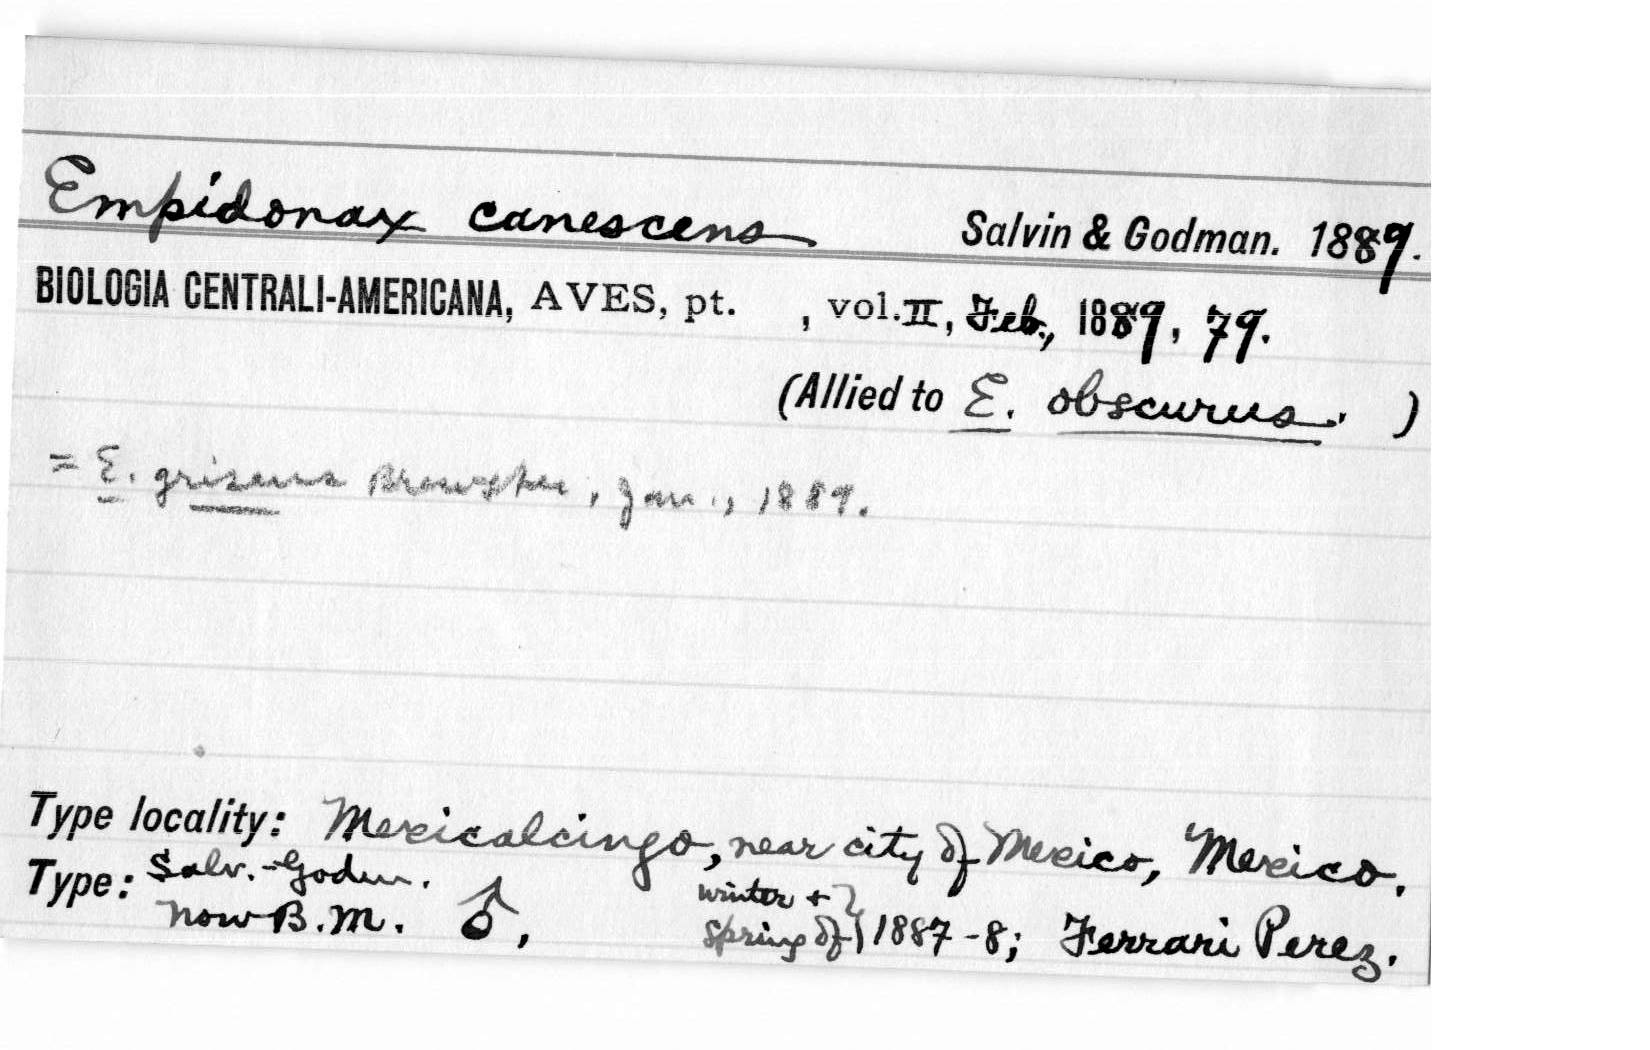 Empidonax canescens Salvin & Godman. 1889.
BIOLOGIA CENTRALI-AMERICANA, AVES, pt. , vol. II, Feb., 1889, 79.
(Allied to E. obscurus. )
= E. griseus Brewster, Jan., 1889.
Type locality: Mexicalcingo, near city of Mexico, Mexico.
Type: Salv.-Godm.
now B.M. ♂, winter + spring of } 1887-8; Ferrari Perez.